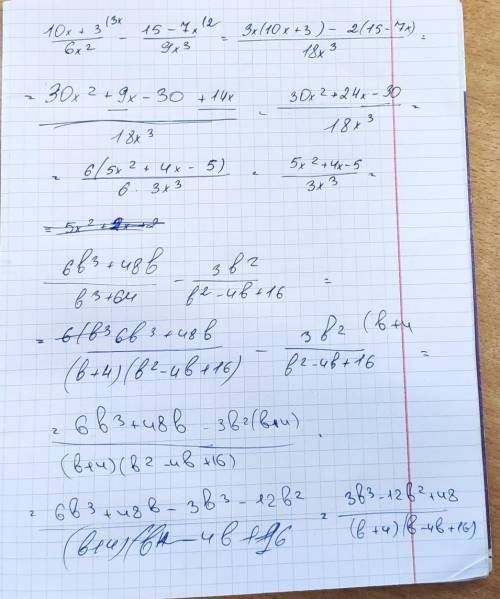 (10x + 3)/(6x²) ⁽³ˣ - (15 - 7x)/(9x³) ⁽² = (3x(10x + 3) - 2(15 - 7x))/(18x³) =
= (30x² + 9x - 30 + 14x)/(18x³) = (30x² + 24x - 30)/(18x³) =
= (6(5x² + 4x - 5))/(6 · 3x³) = (5x² + 4x - 5)/(3x³) =
(6b³ + 48b)/(b³ + 64) - (3b²)/(b² - 4b + 16) =
= (6b³ + 48b)/((b+4)(b² - 4b + 16)) - (3b²)/(b² - 4b + 16) ⁽ᵇ⁺⁴ =
= (6b³ + 48b - 3b²(b+4))/((b+4)(b² - 4b + 16)) =
= (6b³ + 48b - 3b³ - 12b²)/((b+4)(b - 4b + 16) = (3b³ - 12b² + 48)/((b+4)(b - 4b + 16))